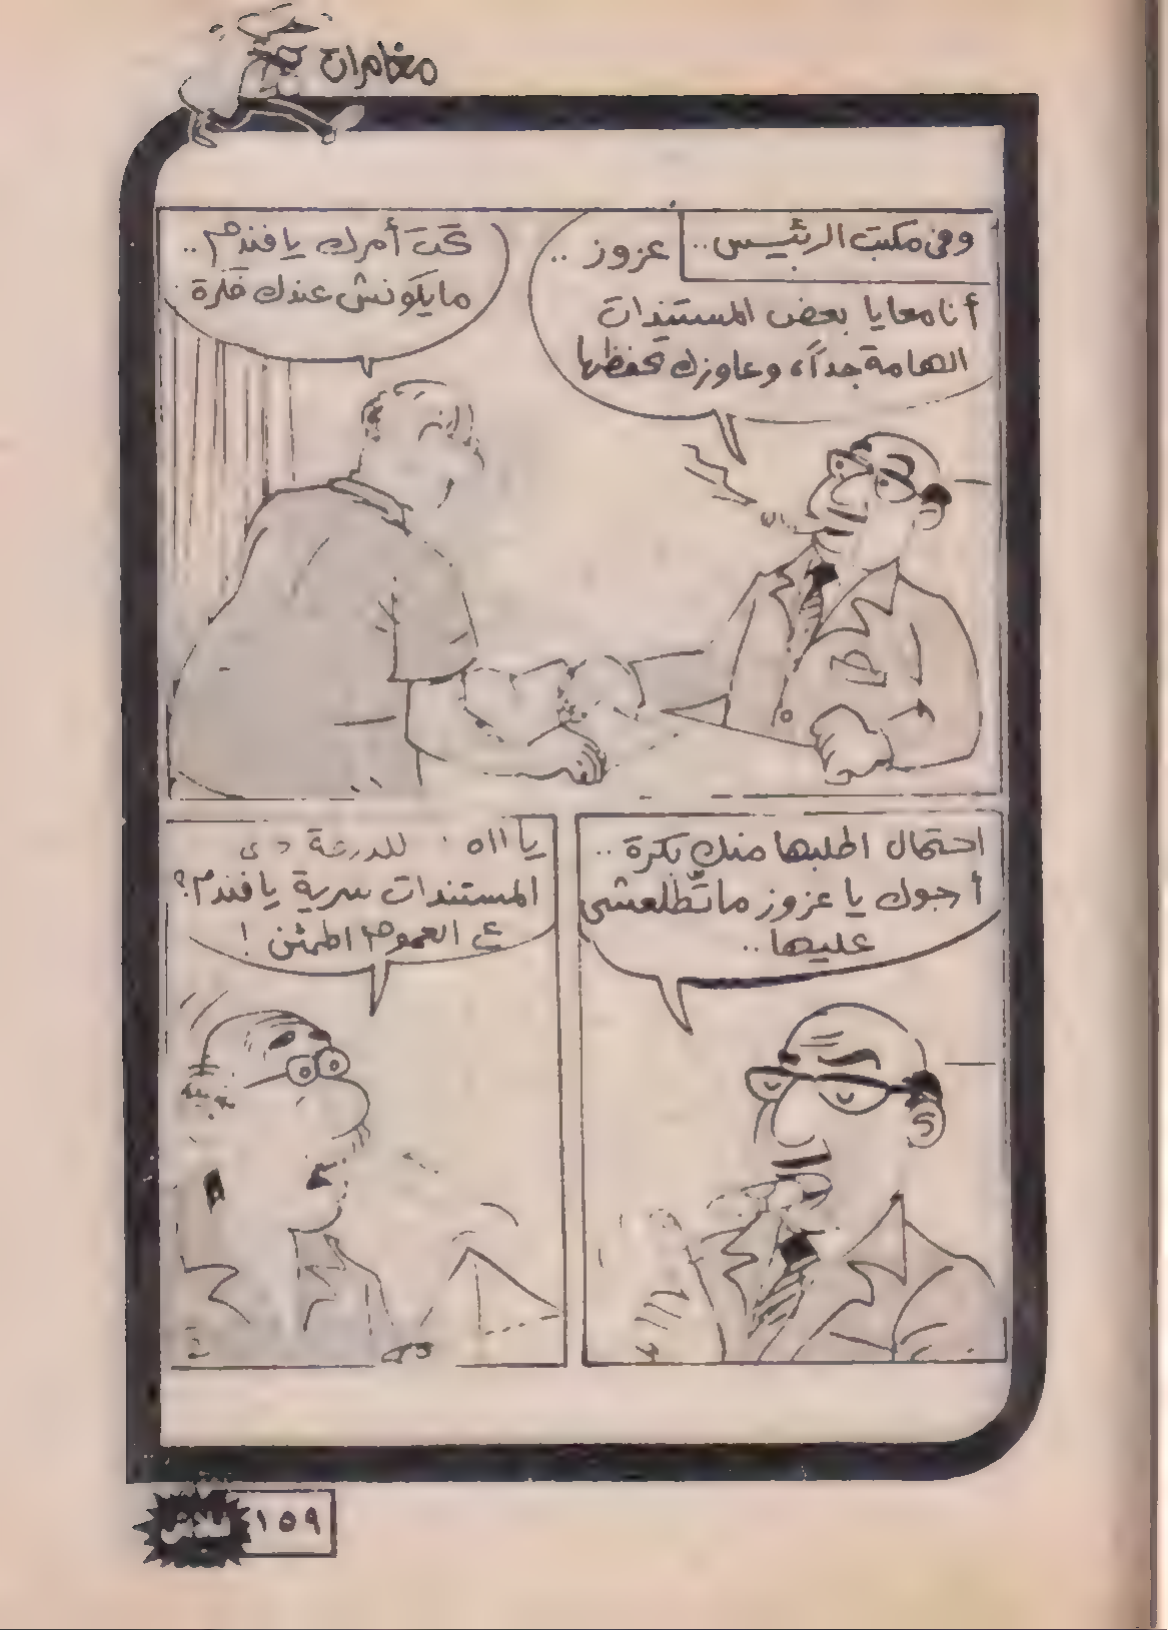 مغامرات
وفى مكتب الرئيس..
عزوز ..
أنا معايا بعض المستندات
الهامة جداً، وعاوزك تحفظها
تحت أمرك يا فندم ..
مايكونش عندك فكرة
احتمال اطلبها منك بكرة ..
أرجوك يا عزوز ماتطلعشى
عليها ..
يا ااه للدرجة دى
المستندات سرية يا فندم؟
ع العموم اطمئن !
١٥٩
فلاش